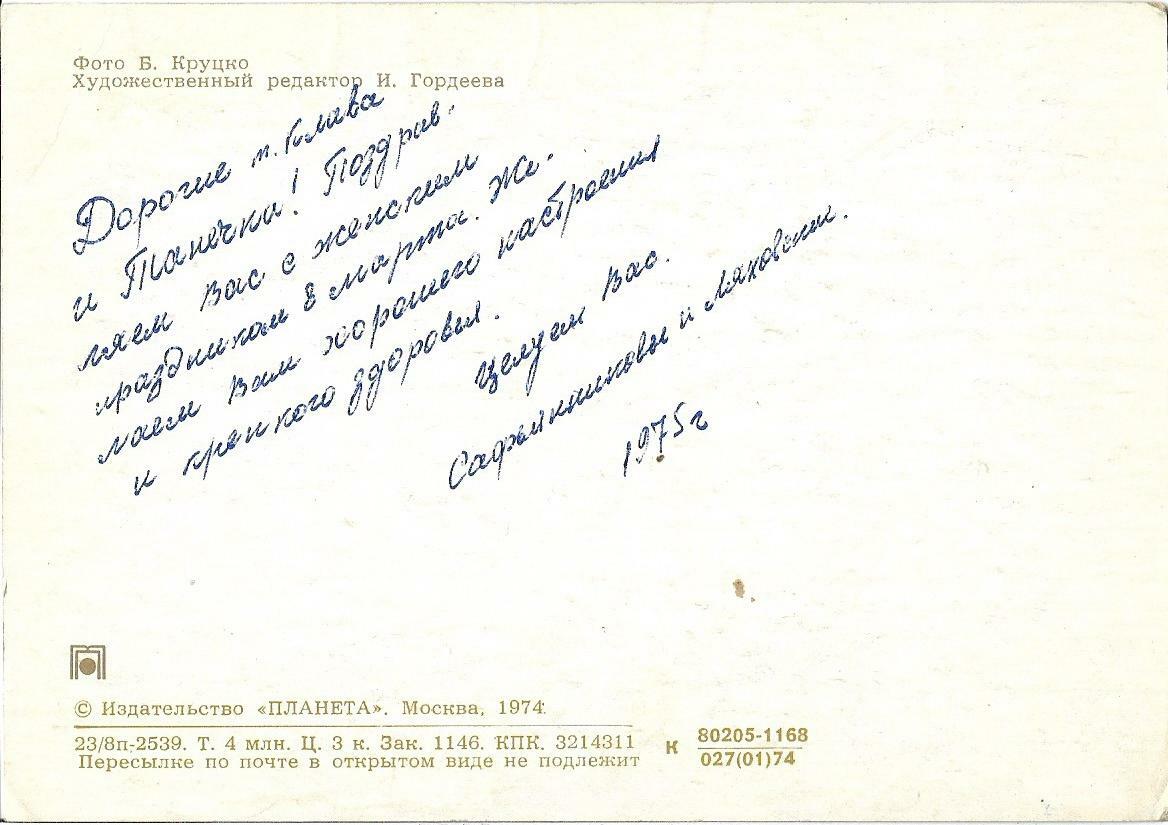 Фото Б. Круцко
Художественный редактор И. Гордеева
Дорогие т. Клава
и Танечка! Поздрав-
ляем Вас с женским
праздником 8 марта. Же-
лаем Вам хорошего настроения
и крепкого здоровья.
Целуем Вас.
и Ляховские.
1975 г
© Издательство «ПЛАНЕТА». Москва, 1974.
23/8п-2539. Т. 4 млн. Ц. 3 к. Зак. 1146. КПК. 3214311
Пересылке по почте в открытом виде не подлежит
К 80205-1168
027(01)74